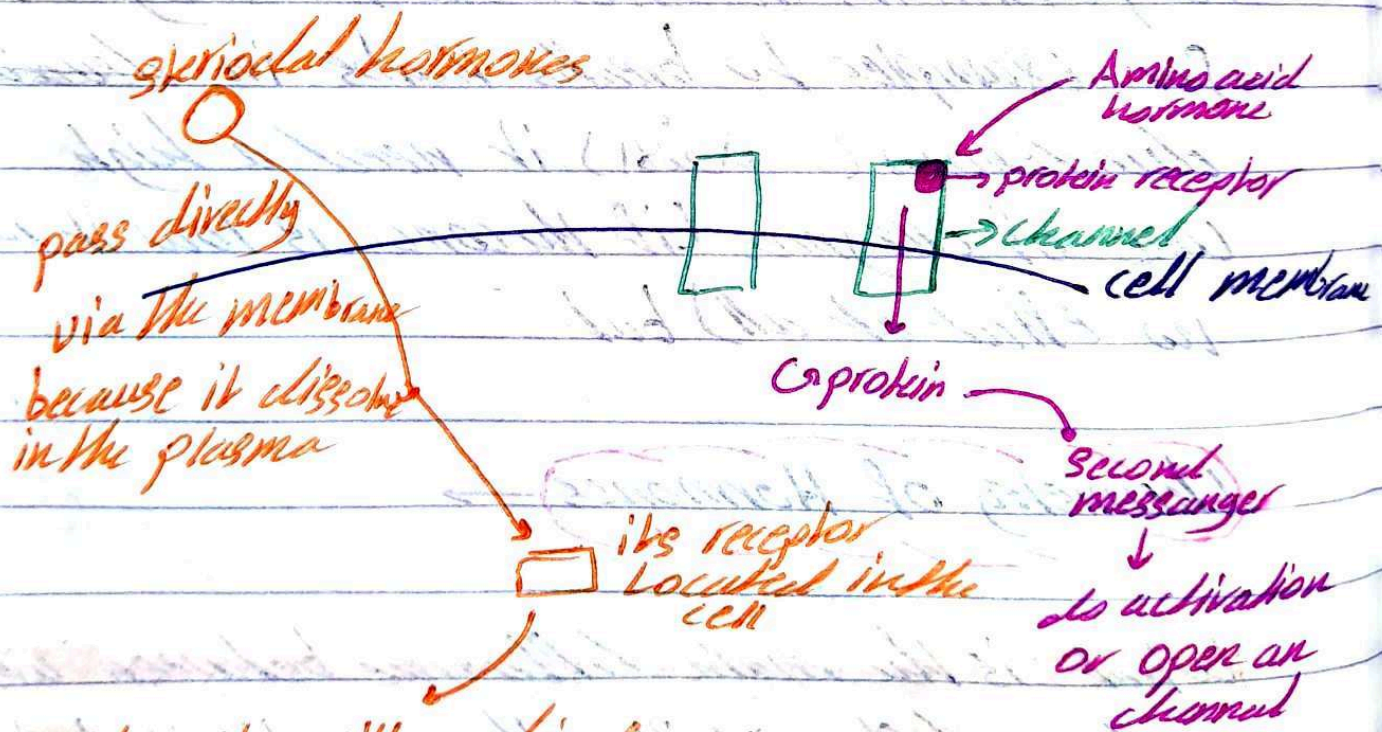 hormones
pass directly
via the membrane
because it dissolve
in the plasma
its receptor
Located in the
cell
Amino acid
hormone
protein receptor
channel
cell membrane
G protein
second
messanger
do activation
or open an
channel